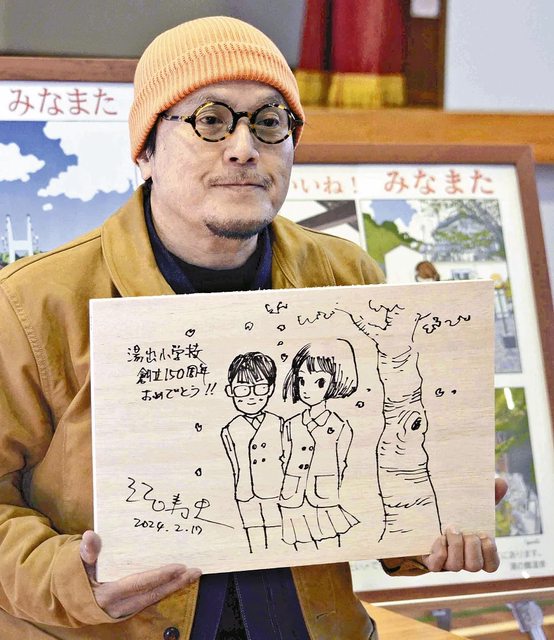 みなまた
いいね！ みなまた
湯出小学校
創立150周年
おめでとう!!
江口寿史
2024.2.17